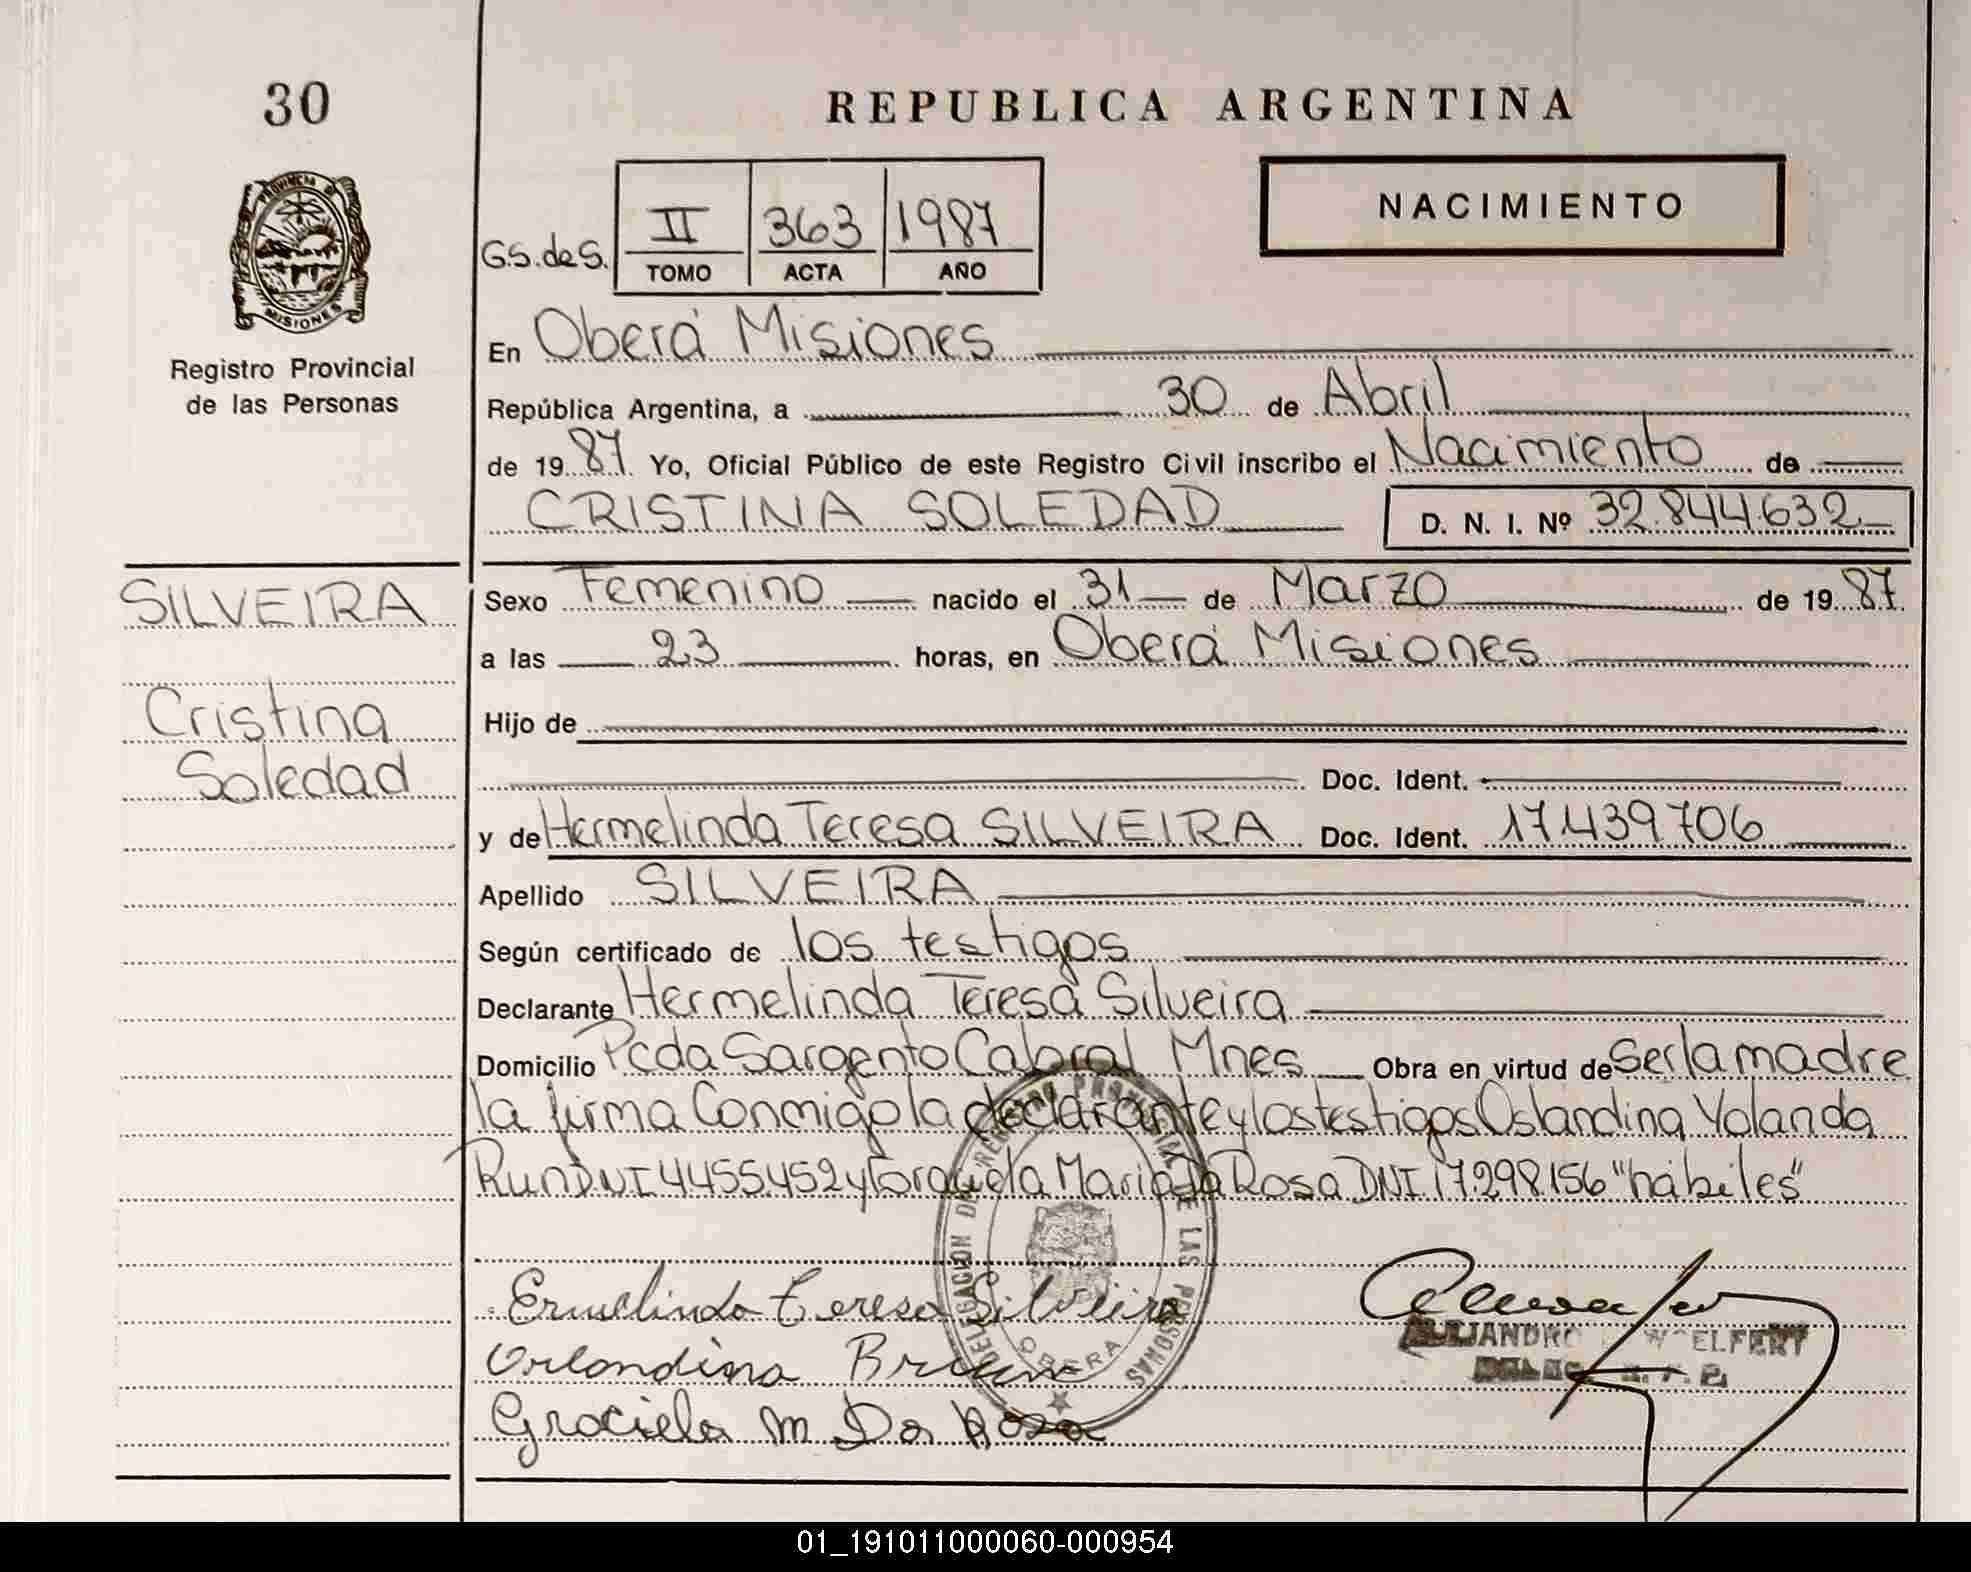 30
REPUBLICA ARGENTINA
PROVINCIA D
MISIONES
Registro Provincial
de las Personas
NACIMIENTO
G.S. de S.
II 363 1987
TOMO ACTA AÑO
En Oberá Misiones
República Argentina, a 30 de Abril
de 19 87 Yo, Oficial Público de este Registro Civil inscribo el Nacimiento de
CRISTINA SOLEDAD D. N. I. Nº 32.844.632
SILVEIRA
Cristina
Soledad
Sexo Femenino nacido el 31 de Marzo de 19 87
a las 23 horas, en Oberá Misiones
Hijo de
Doc. Ident.
y de Hermelinda Teresa SILVEIRA Doc. Ident. 17.439.706
Apellido SILVEIRA
Según certificado de los testigos
Declarante Hermelinda Teresa Silveira
Domicilio Pcda Sargento Cabral Mnes Obra en virtud de Ser la madre
la firma Conmigo la declarante y los testigos Oslandina Yolanda
Run DNI 4455.452 y Graciela Maria Da Rosa DNI 17.298.156 "hábiles"
Ermelinda Teresa Silveira
Orlandina
Graciela M Da Rosa
DELEGACION DEL REGISTRO PROVINCIAL DE LAS PERSONAS
OBERA
ALEJANDRO WOELFERT
01_191011000060-000954